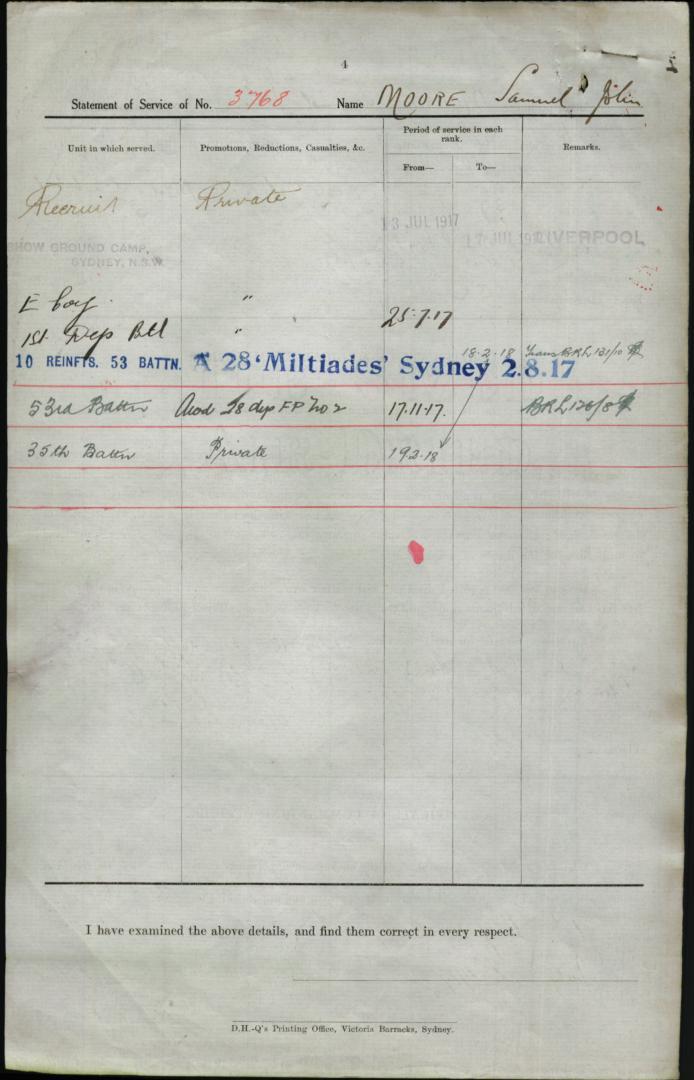 4
Statement of Service of No. 3768 Name MOORE Samuel John
Unit in which served. Promotions, Reductions, Casualties, &c. Period of service in each rank. From— To— Remarks.
Recruit Private 13 JUL 1917
SHOW GROUND CAMP, SYDNEY, N.S.W. 17 JUL LIVERPOOL
E Coy. " 25.7.17
1st Dep Btl "
18.2.18 Trans BRL 131/10
10 REINFTS. 53 BATTN. A 28 'Miltiades' Sydney 2.8.17
53rd Battn Awd 28 dys FP No 2 17.11.17. BRL 126/8
35th Battn Private 19.2.18
I have examined the above details, and find them correct in every respect.
D.H.-Q's Printing Office, Victoria Barracks, Sydney.